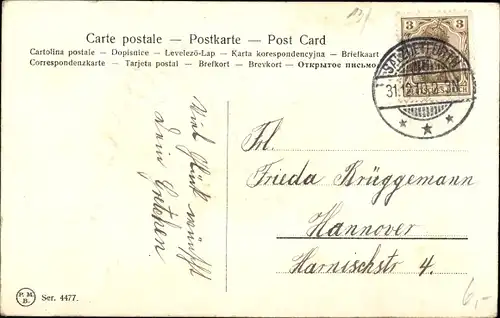 Carte postale – Postkarte – Post Card
Cartolina postale – Dopisnice – Levelező-Lap – Karta korespondencyjna – Briefkaart
Correspondenzkarte – Tarjeta postal – Brefkort – Brevkort – Открытое письмо
3 3
31.12.10.
Viel Glück wünscht
Dein
Frl.
Frieda Brüggemann
Hannover
Harnischstr 4.
6,-
P. M. B. Ser. 4477.